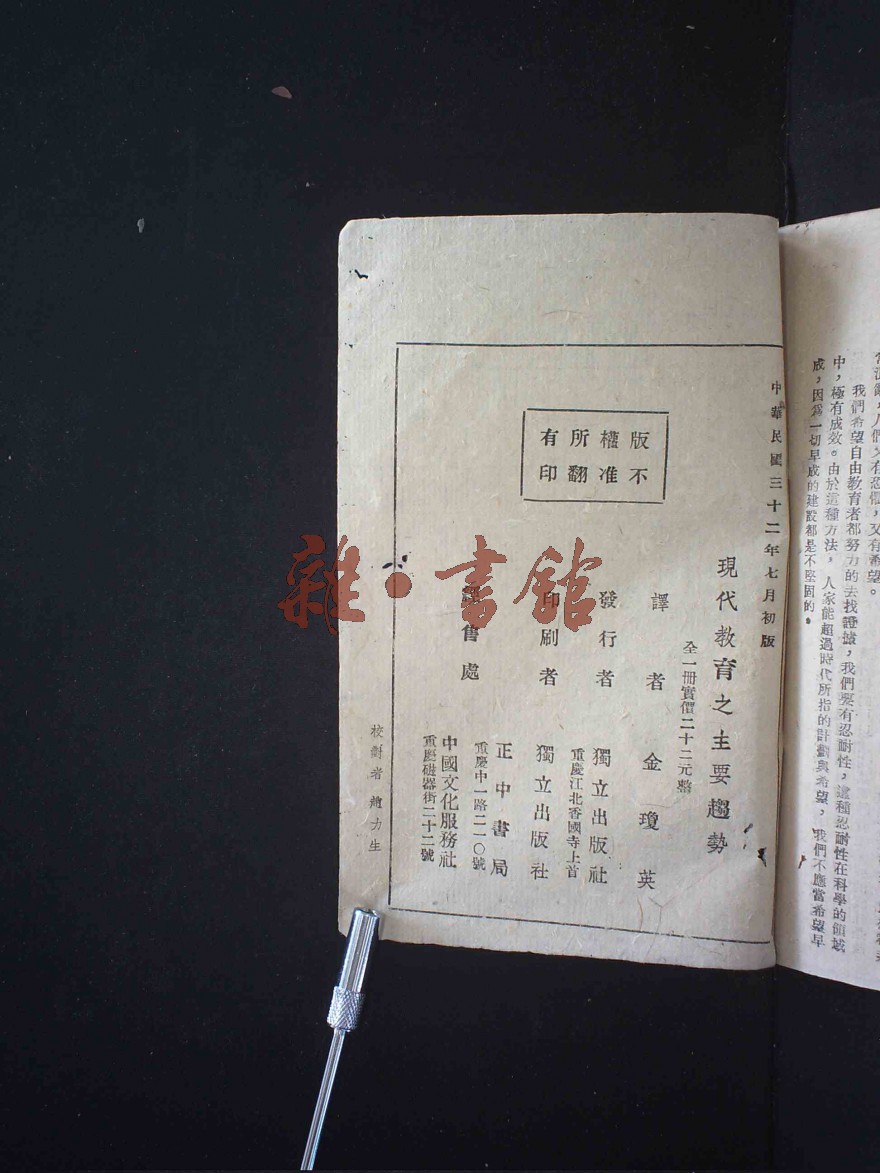 我們希望自由教育者都努力的去找證據，我們要有忍耐性，這種忍耐性在科學的領域
中，極有成效。由於這種方法，人家能超過時代所指的計劃與希望，我們不應當希望早
成，因爲一切早成的建設都是不堅固的。
中華民國三十二年七月初版
現代教育之主要趨勢
全一冊實價二十二元整
譯者 金瓊英
發行者 獨立出版社
重慶江北香國寺上首
印刷者 獨立出版社
售處 正中書局
重慶中一路二一〇號
中國文化服務社
重慶磁器街二十二號
版權所有
不准翻印
校對者 趙力生
雜·書館